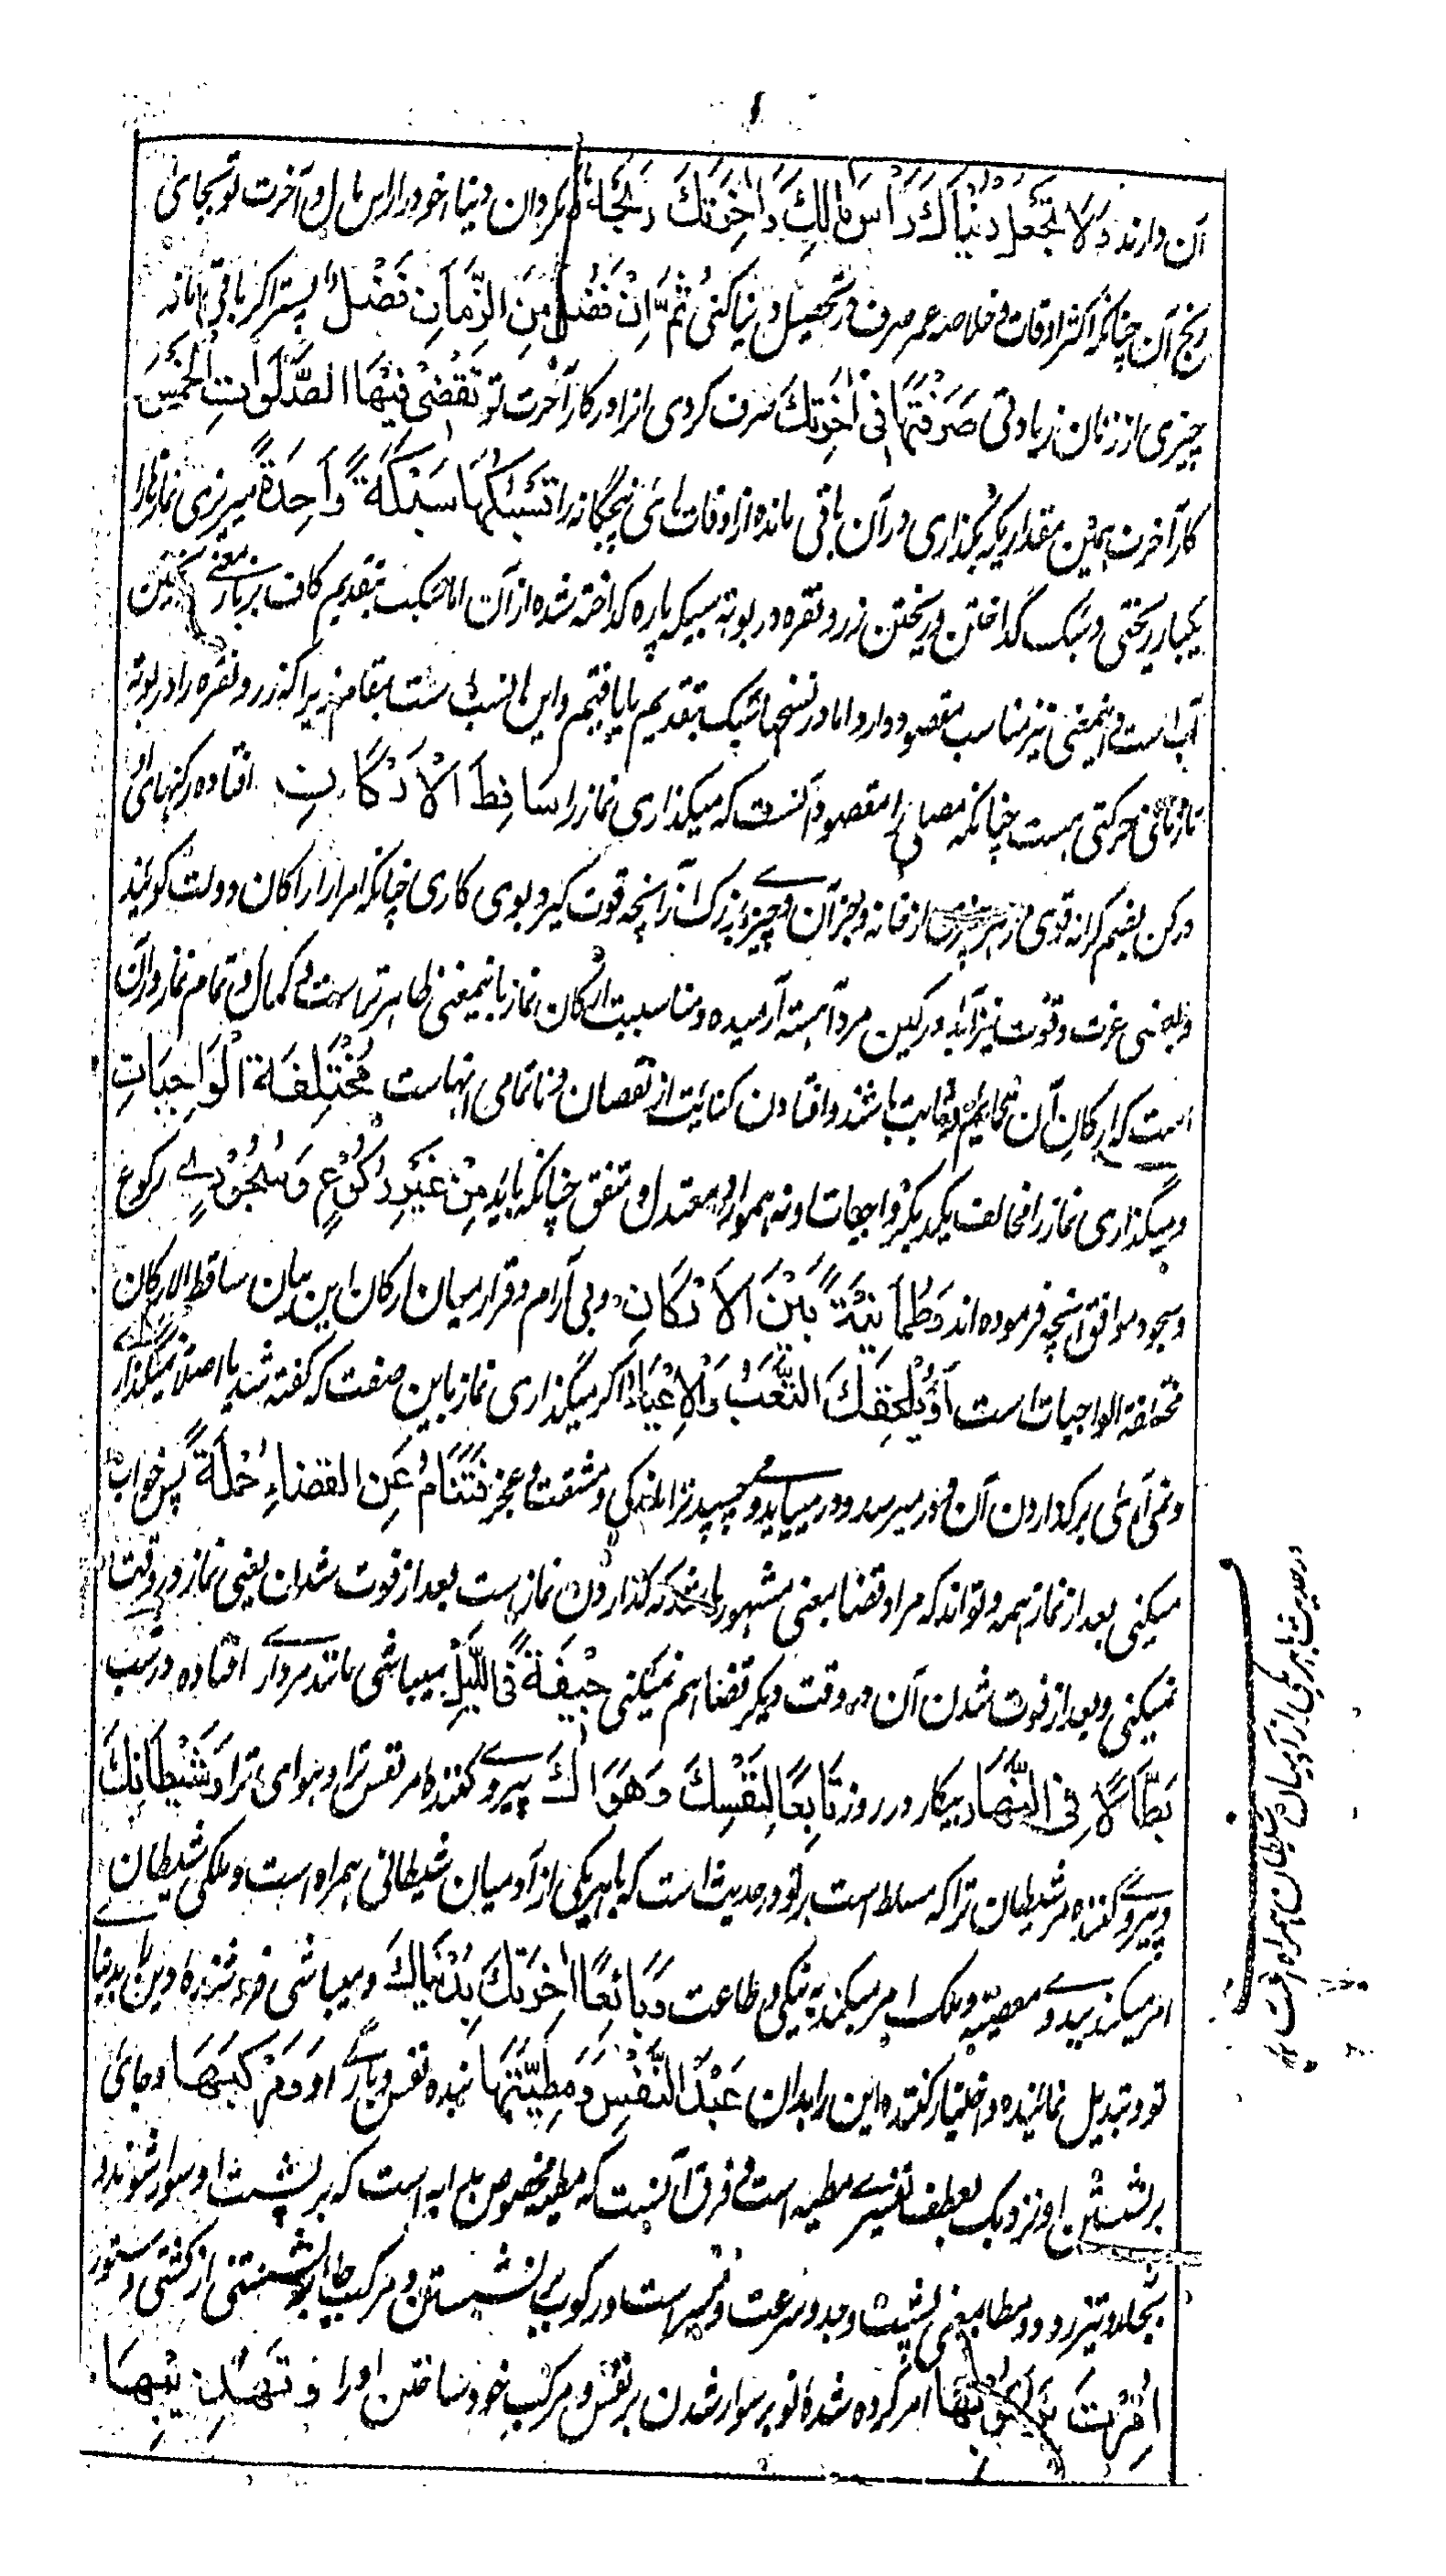 آن دارند وَلَا تَجْعَلْ دُنْيَاكَ رَأْسَ مَالِكَ وَاٰخِرَتَكَ رِبْحَهٗ مگردان دنیاء خود را راس مال و آخرت تو بجای
ربح آن چنانکه اکثر اوقات و خلاصه عمر صرف در تحصیل دنیا کنی ثُمَّ اِنْ فَضُلَ مِنَ الزَّمَانِ فَضْلٌ پستر اگر باقی ماند
چیزی از زمان زیادتی صَرَفْتَهَا فِیْ اٰخِرَتِكَ صرف کردی انرا در کار آخرت تو تَقْضِیْ فِيْهَا الصَّلَوَاتِ الْخَمْسَ
کار آخرت همین مقدار که بگذاری در آن باقی مانده از اوقات های پنجگانه را تَسْبِكُهَا سَبْكَةً وَّاحِدَةً میریزی نمازها را
یکبار ریختی و سبک گداختن و ریختن زر و نقره در بوته سبیکه پاره گداخته شده از آن اما سکب بتقدیم کاف بر با بمعنی ریختن
آب است و اینمعنی نیز مناسب مقصود دارد اما در نسخها سبک بتقدیم با یافتیم و این انسب است بمقام زیرا که زر و نقره را در بوته
حرکتی هست چنانکه مصلی را مقصود آنست که میگذاری نماز را سَاقِطَ الْاَرْكَانِ افتاده رکنهای او
و رکن بضم کرانه قوی تر از خانه و جز آن و چیزی بزرک از آنچه قوت گیرد بوی کاری چنانکه امرا را ارکان دولت گویند
و بمعنی عزت و قوت نیز آید و رکین مرد آهسته آرمیده و مناسبت ارکان نماز باینمعنی ظاهرتر است و کمال و تمام نماز در آن
است که ارکان آن قایم و ثابت باشند و افتادن کنایت از نقصان و ناتمامی انهاست مُخْتَلِفَةَ الْوَاجِبَاتِ
و میگذاری نماز را مخالف یکدیگر واجبات او نه هموار و معتدل و متفق چنانکه باید مِنْ غَيْرِ رُكُوْعٍ وَسُجُوْدٍ بے رکوع
و سجود موافق آنچه فرموده اند وَطُمَأْنِيْنَةً بَيْنَ الْاَرْكَانِ و بی آرام و قرار میان ارکان این بیان ساقط الارکان
مختلفة الواجبات است اَوْ يَلْحَقُكَ التَّعَبُ وَالْاِعْيَاءُ اگر میگذاری نماز باین صفت که گفته شد یا اصلا نمیگذاری
و نمی آئی بر گذاردن آن میرسد و در مییابد و میچسپد ترا ماندگی و مشقت و عجز فَتَنَامُ عَنِ الْقَضَاءِ جُمْلَةً پس خواب
میکنی بعد از نماز همه و تواند که مراد قضا بمعنی مشهور باشد که گذاردن نماز است بعد از فوت شدن یعنی نماز در وقت
نمیکنی و بعد از فوت شدن آن در وقت دیگر قضا هم نمیکنی جِيْفَةً فِی اللَّيْلِ میباشی مانند مردار افتاده در شب
بَطَّالًا فِی النَّهَارِ بیکار در روز تَابِعًا لِنَفْسِكَ وَهَوَاكَ پیروی کننده مر نفس ترا و هوای ترا وَشَيْطَانِكَ
و پیروی کننده مر شیطان ترا که مسلط است بر تو در حدیث است که با هر یکی از آدمیان شیطانی همراه است و ملکی شیطان
امر میکند ببدی و معصیت و ملک امر میکند به نیکی و طاعت وَبَائِعًا اٰخِرَتَكَ بِدُنْيَاكَ و میباشی فروشنده دین را بدنیا
تو و تبدیل نماینده و اختیار کننده این را بدان عَبْدَ النَّفْسِ وَمَطِيَّتَهَا بنده نفس و بارگی او وَمَرْكَبَهَا و جای
بر نشستن او نزدیک بعطف تفسیری مطیه است و فرق آنست که مطیه مخصوص بدابه است که بر پشت او سوار شوند و
بجلد و تیز رود و مطا بمعنی پشت و جد و سرعت در سیر است و رکوب بر نشستن و مرکب جای بر نشستنی از کشتی و ستور
اُمِرْتَ بِرُكُوْبِهَا امر کرده شدهٔ تو بر سوار شدن بر نفس و مرکب خود ساختن او را وَتَهْذِيْبِهَا
در حدیث با هر یکی از آدمیان شیطان همراه است